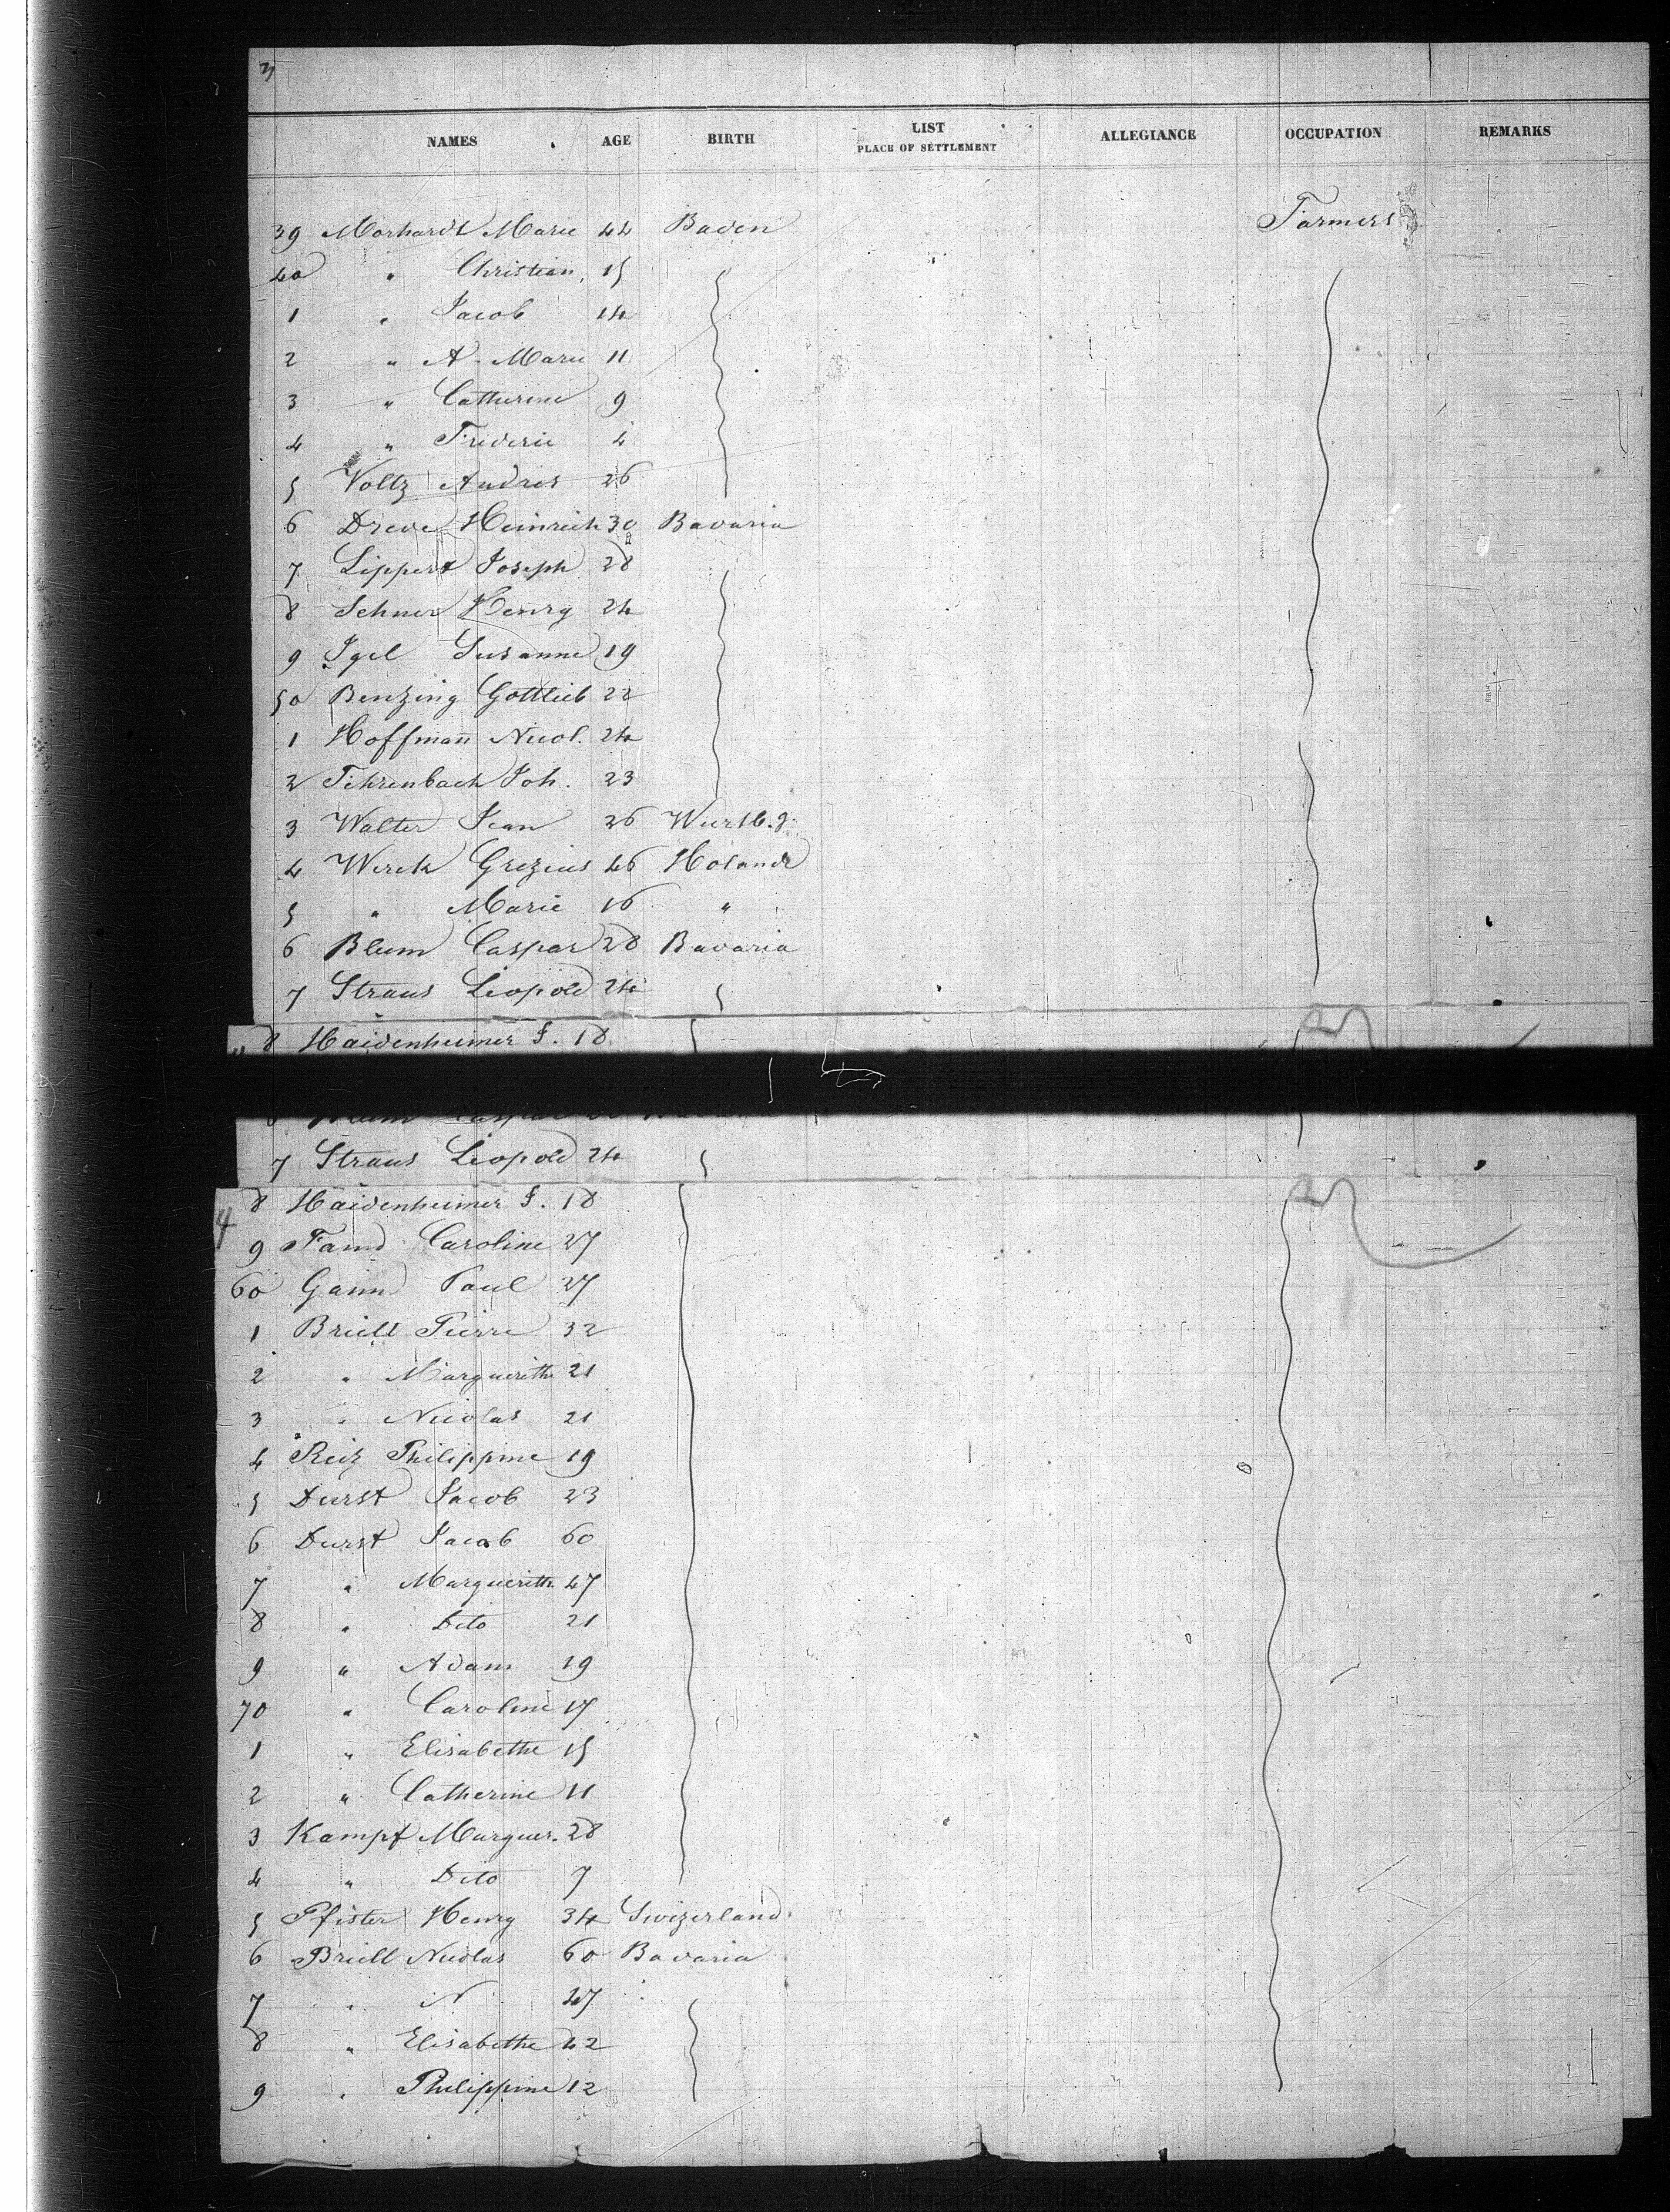 3
NAMES AGE BIRTH LIST PLACE OF SETTLEMENT ALLEGIANCE OCCUPATION REMARKS
39 Morhardt Marie 44 Baden Farmers
40 " Christian, 15
1 " Jacob 14
2 " A. Marie 11
3 " Catherine 9
4 " Frideric 4
5 Voltz Andres 26
6 Dreve Heinrich 30 Bavaria
7 Lippert Joseph 28
8 Schner Henry 24
9 Igel Susanne 19
50 Benzing Gottlieb 22
1 Hoffmann Nicol. 24
2 Fehrenbach Joh. 23
3 Walter Jean 26 Wurtb.g
4 Werck 46 Holand
5 " Marie 16 "
6 Blum Caspar 28 Bavaria
7 Straus Leopold 24
8 Haidenheimer J. 18
7 Straus Leopold 24
4
8 Haidenheimer J. 18
9 Caroline 27
60 Paul 27
1 Briell Pierre 32
2 " Marguerithe 21
3 " Nicolas 21
4 Reiz Philippine 19
5 Durst Jacob 23
6 Durst Jacob 60
7 " Marguerithe 47
8 " Dito 21
9 " Adam 19
70 " Caroline 17
1 " Elisabethe 15
2 " Catherine 11
3 Kampf Marguer. 28
4 " Dito 7
5 Pfister Henry 34 Swizerland
6 Briell Nicolas 60 Bavaria
7 " N 27
8 " Elisabethe 42
9 " Philippine 12